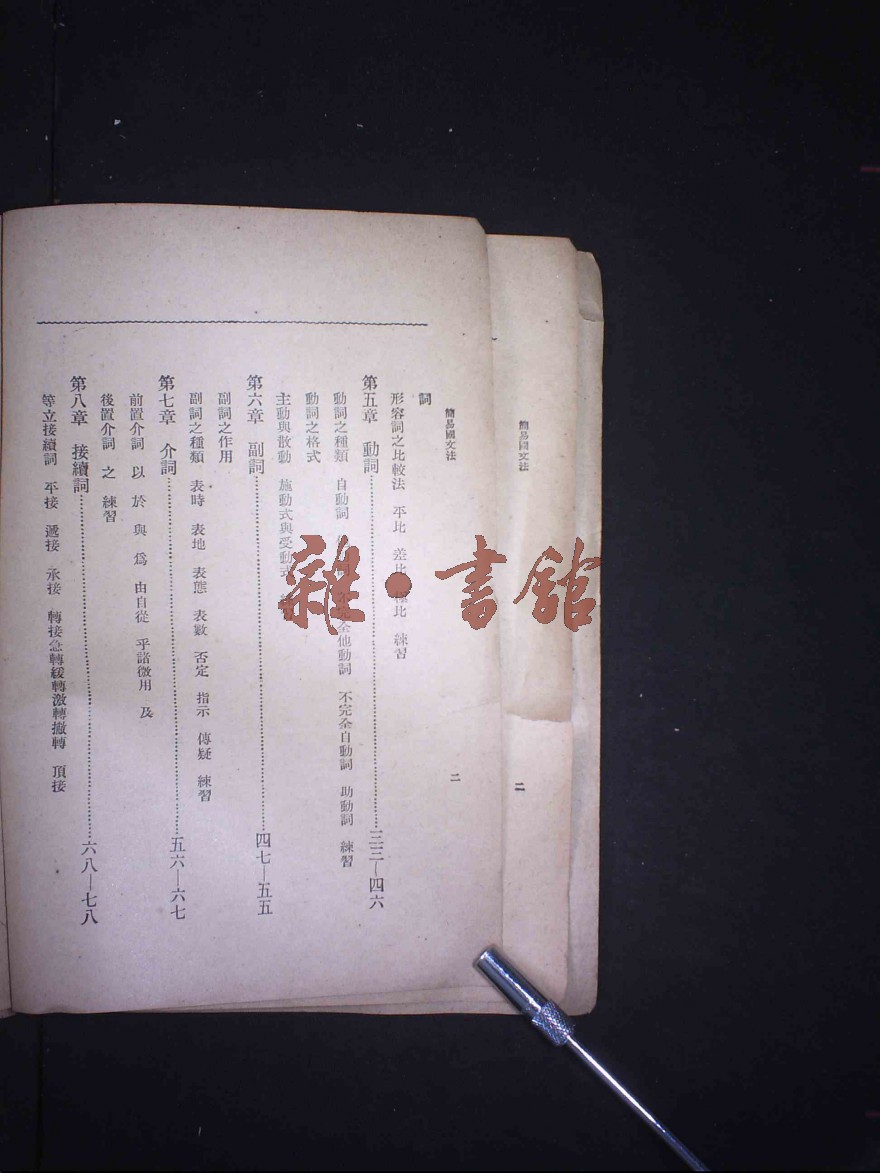 簡易國文法
二
簡易國文法
二
詞
形容詞之比較法 平比 差比 極比 練習
第五章 動詞……三三—四六
動詞之種類 自動詞 全他動詞 不完全自動詞 助動詞 練習
動詞之格式
主動與散動 施動式與受動式
第六章 副詞……四七—五五
副詞之作用
副詞之種類 表時 表地 表態 表數 否定 指示 傳疑 練習
第七章 介詞……五六—六七
前置介詞 以 於 與 爲 由自從 乎諸微用 及
後置介詞 之 練習
第八章 接續詞……六八—七八
等立接續詞 平接 遞接 承接 轉接急轉緩轉激轉撇轉 頂接
雜·書館